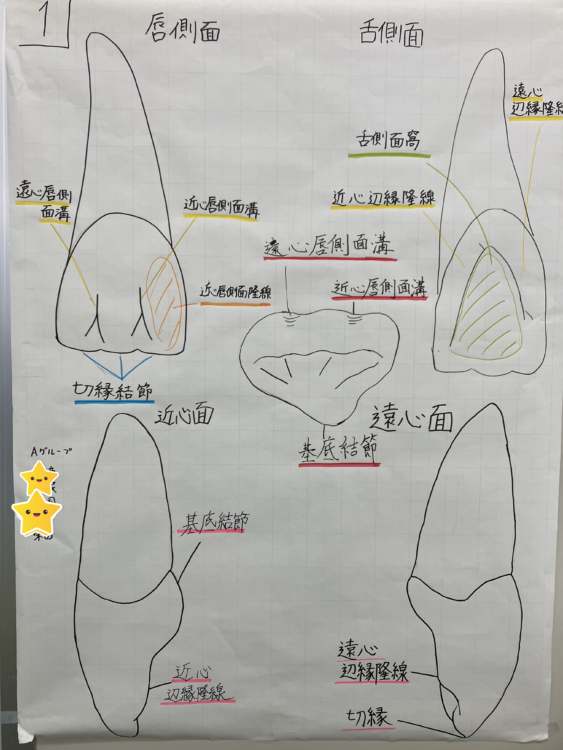 1
唇側面
舌側面
遠心
辺縁隆線
舌側面窩
遠心唇側
面溝
近心唇側面溝
近心辺縁隆線
遠心唇側面溝
近心唇側面隆線
近心唇側面溝
切縁結節
近心面
遠心面
基底結節
Aグループ
基底結節
近心
辺縁隆線
遠心
辺縁隆線
切縁